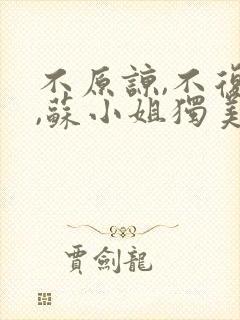 不原諒,不復
,蘇小姐獨美
賈劍龍